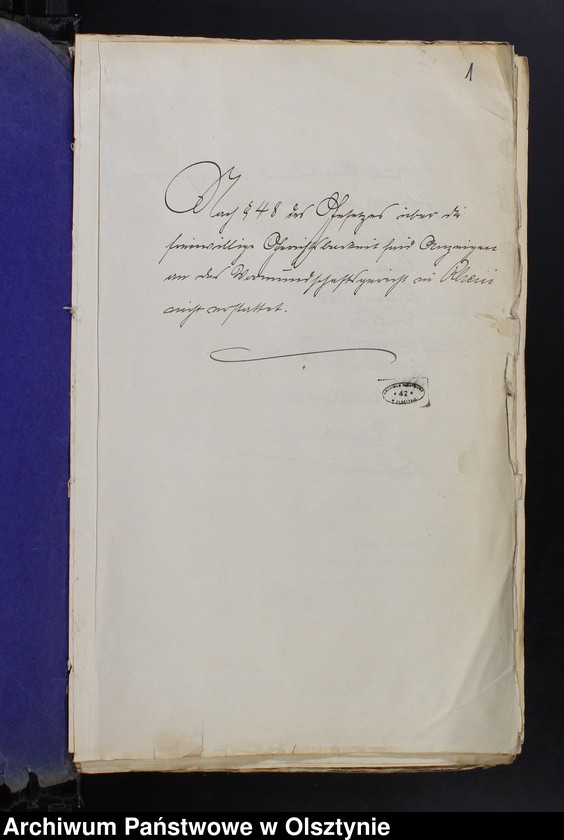 1
Nach § 48 des Gesetzes über die
freiwillige Gerichtsbarkeit sind Anzeigen
an das Vormundschaftsgericht in Rhein
nicht erstattet.
* 42 *
Archiwum Państwowe w Olsztynie